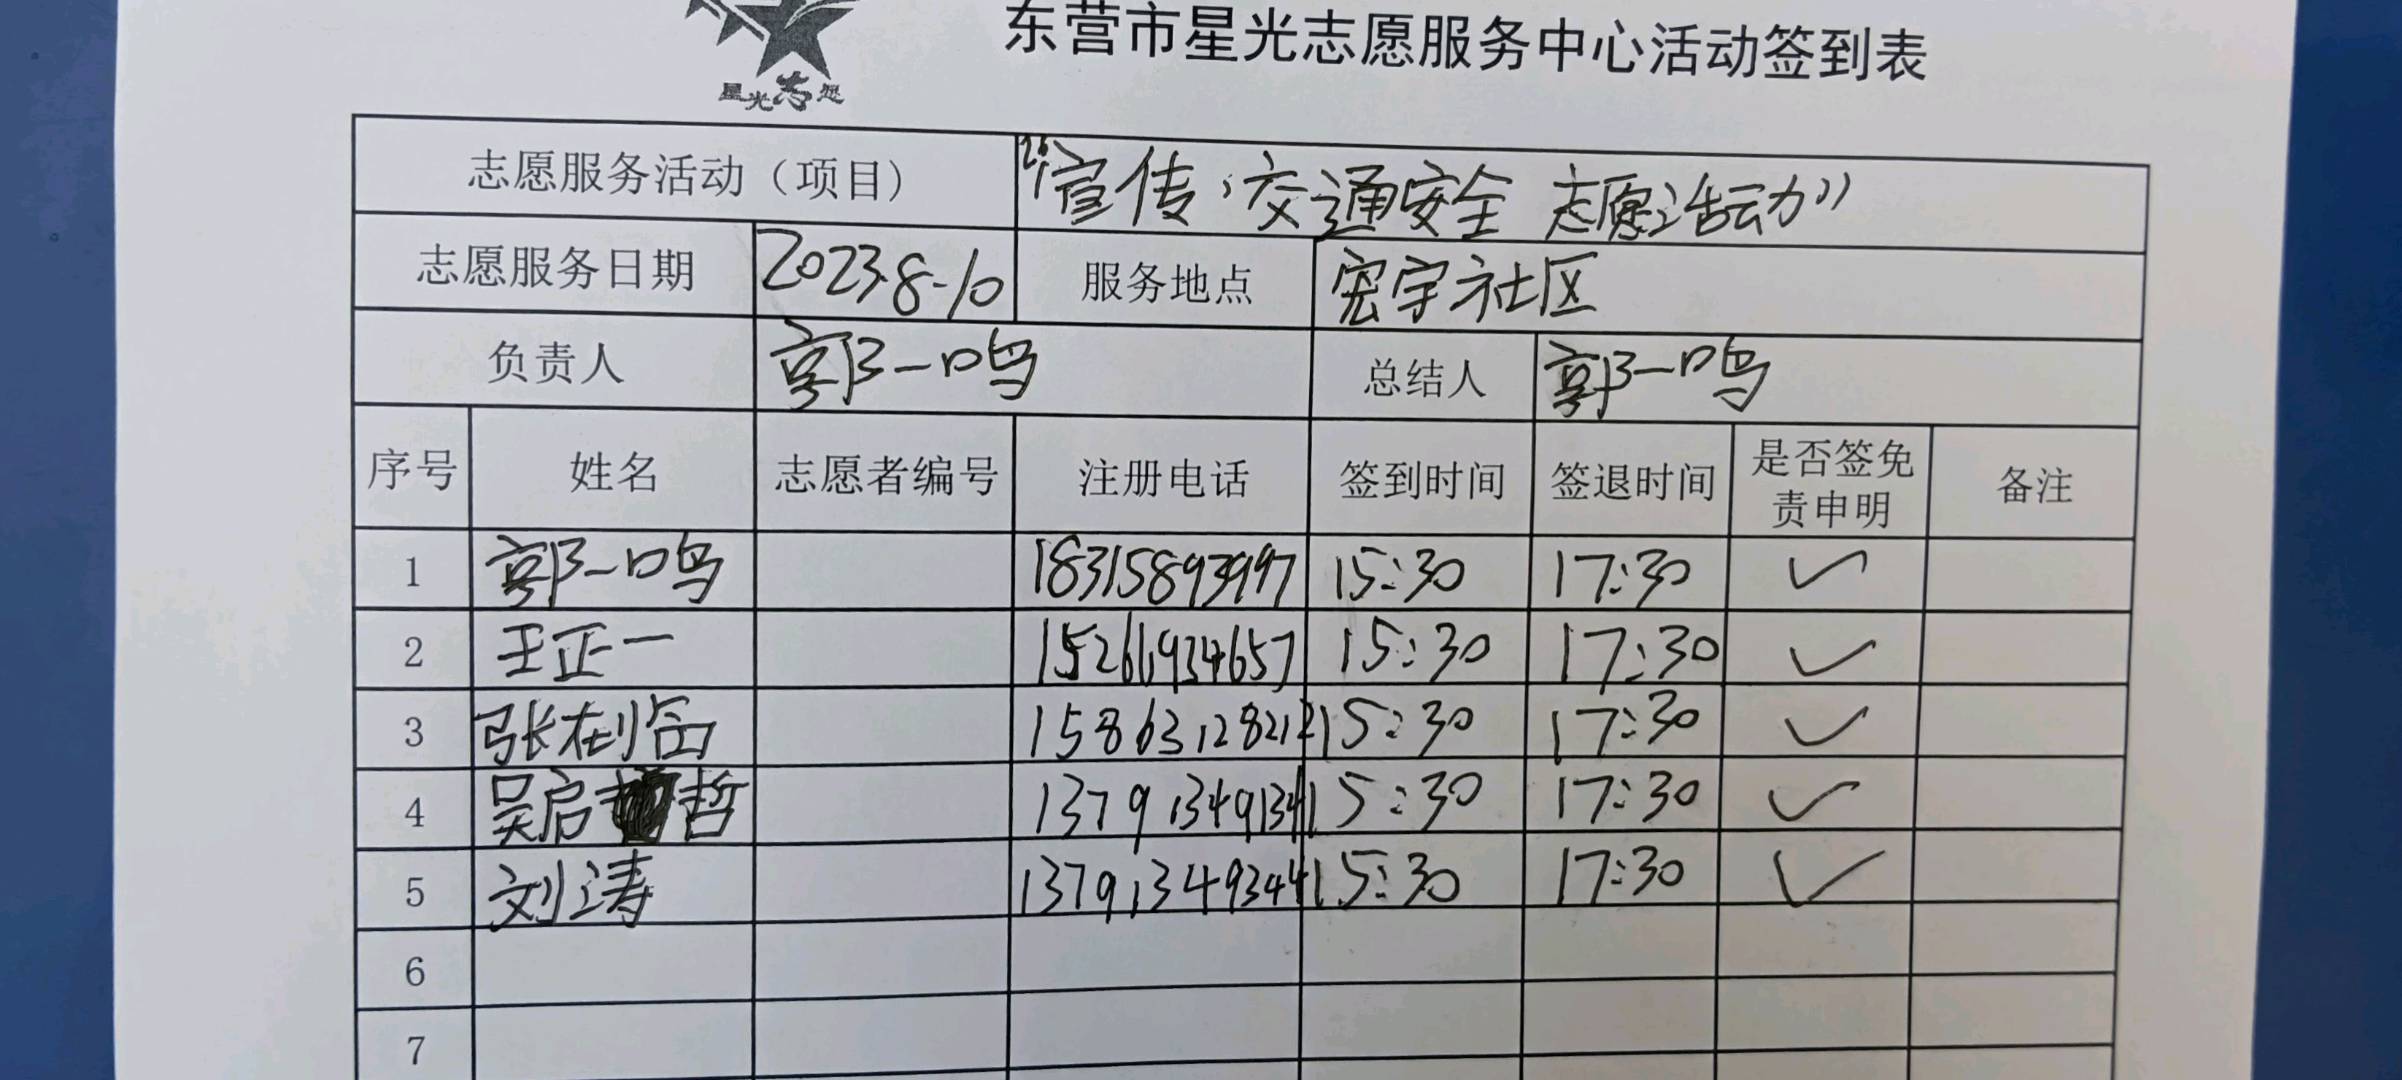 东营市星光志愿服务中心活动签到表
星光志愿
志愿服务活动（项目） “宣传，交通安全 志愿活动”
志愿服务日期 2023.8-10 服务地点 宏宇社区
负责人 郭一鸣 总结人 郭一鸣
序号 姓名 志愿者编号 注册电话 签到时间 签退时间 是否签免责申明 备注
1 郭一鸣 18315893997 15:30 17:30 ✓
2 王正一 15261934657 15:30 17:30 ✓
3 张 15863128212 15:30 17:30 ✓
4 吴启哲 13791349134 15:30 17:30 ✓
5 刘涛 13791349344 15:30 17:30 ✓
6
7